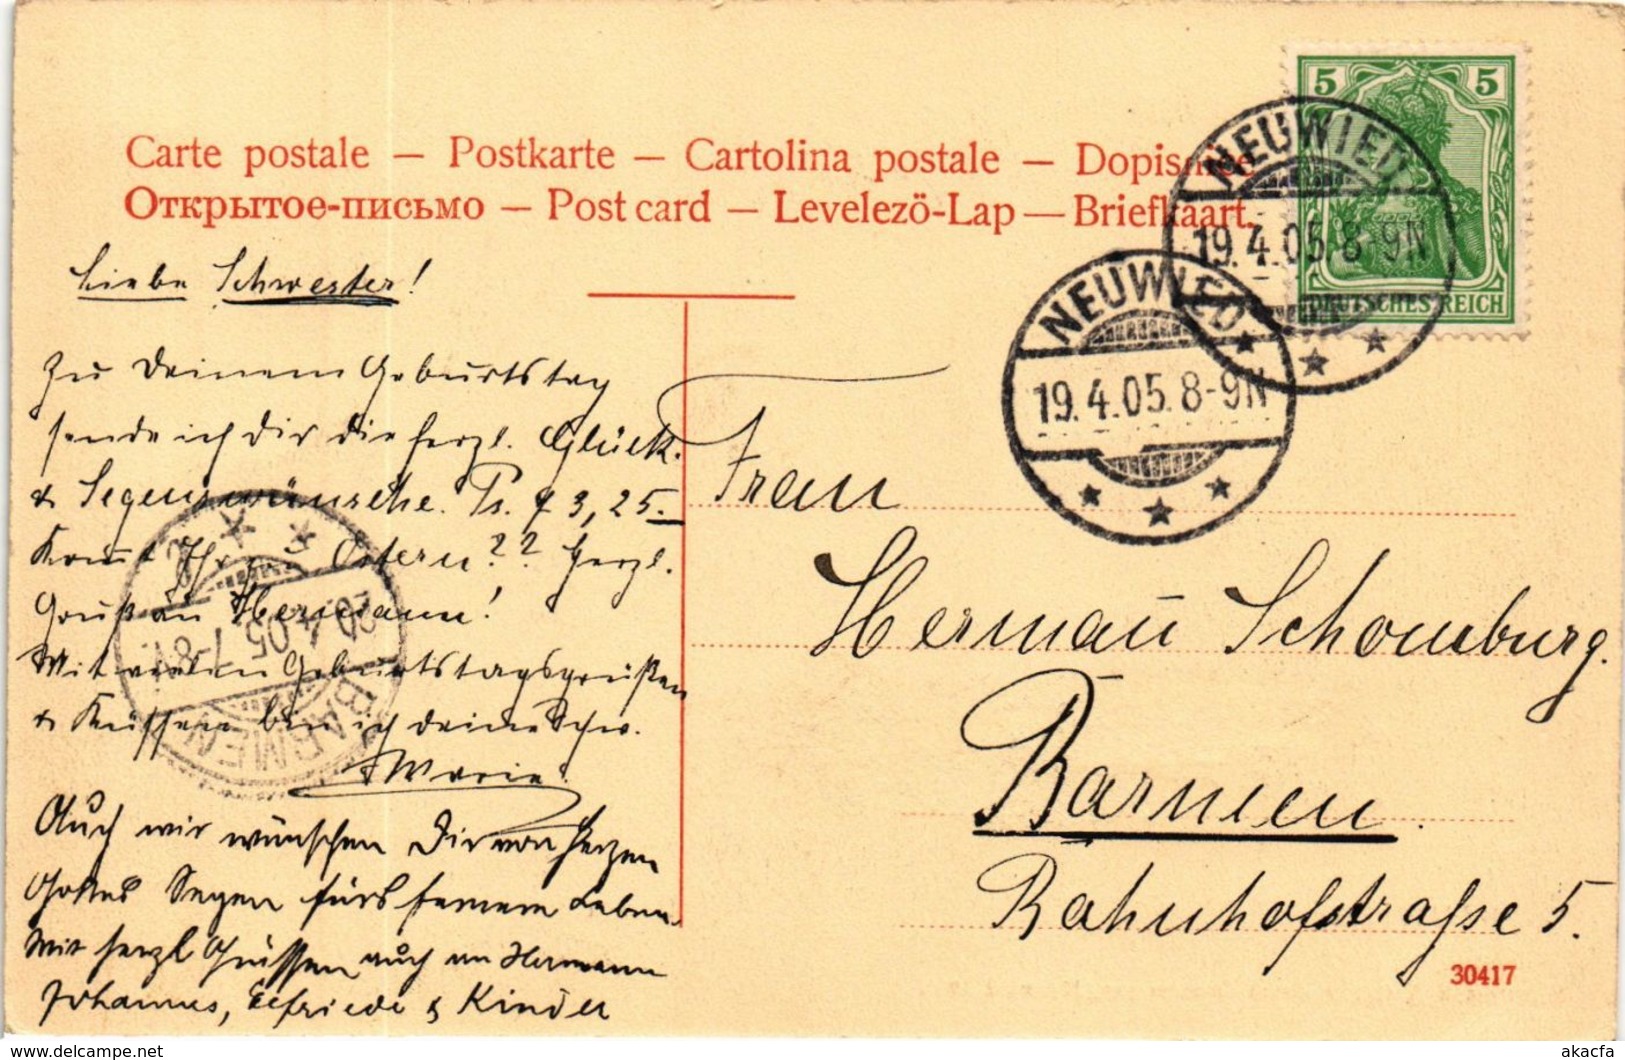 Carte postale — Postkarte — Cartolina postale — Dopisnice
Открытое-письмо — Post card — Levelezö-Lap — Briefkaart.
5 5
DEUTSCHES REICH
NEUWIED
19.4.05.8-9N
NEUWIED
19.4.05.8-9N
Liebe Schwester!
Zu Deinem Geburtstag
sende ich Dir die herzl. Glück-
& Segenswünsche. Ps. 73, 25.
Kommt Ihr zu Ostern?? Herzl.
Gruß an Hermann!
Mit vielen Geburtstagsgrüßen
& Küssen bin ich deine Schw.
Marie.
Auch wir wünschen Dir von Herzen
Gottes Segen fürs fernere Leben.
Mit herzl Grüssen auch an Hermann
Johannes, Elfriede & Kinder
BARMEN
20.4.05 7-8V
Frau
Hermañ Schomburg.
Barmen.
Bahnhofstraße 5.
30417
akacfa